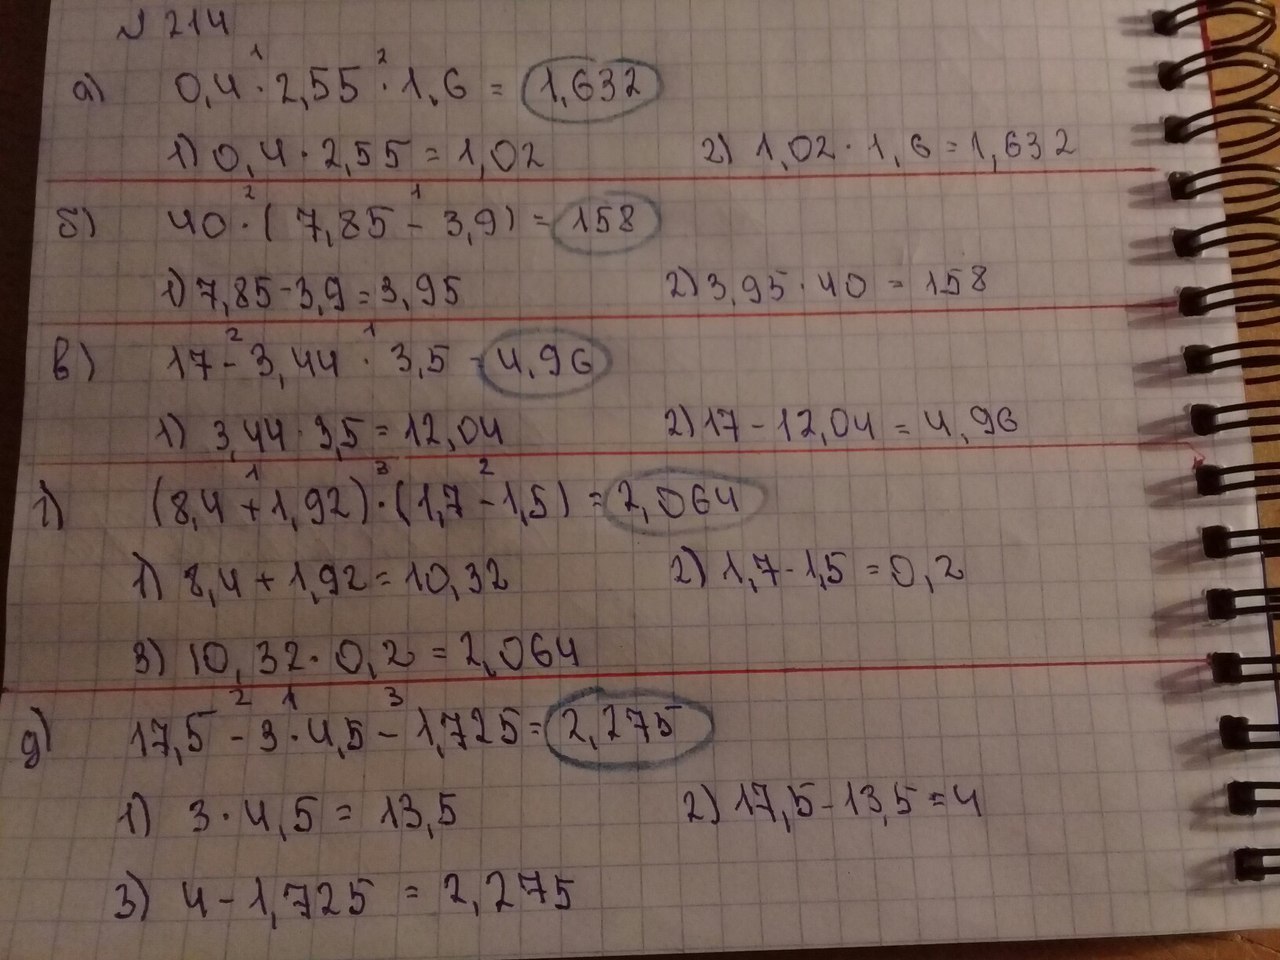 № 214
а) 0,4 · 2,55 · 1,6 = 1,632
1) 0,4 · 2,55 = 1,02 2) 1,02 · 1,6 = 1,632
б) 40 · ( 7,85 - 3,9) = 158
1) 7,85 - 3,9 = 3,95 2) 3,95 · 40 = 158
в) 17 - 3,44 · 3,5 = 4,96
1) 3,44 · 3,5 = 12,04 2) 17 - 12,04 = 4,96
г) (8,4 + 1,92) · (1,7 - 1,5) = 2,064
1) 8,4 + 1,92 = 10,32 2) 1,7 - 1,5 = 0,2
3) 10,32 · 0,2 = 2,064
д) 17,5 - 3 · 4,5 - 1,725 = 2,275
1) 3 · 4,5 = 13,5 2) 17,5 - 13,5 = 4
3) 4 - 1,725 = 2,275